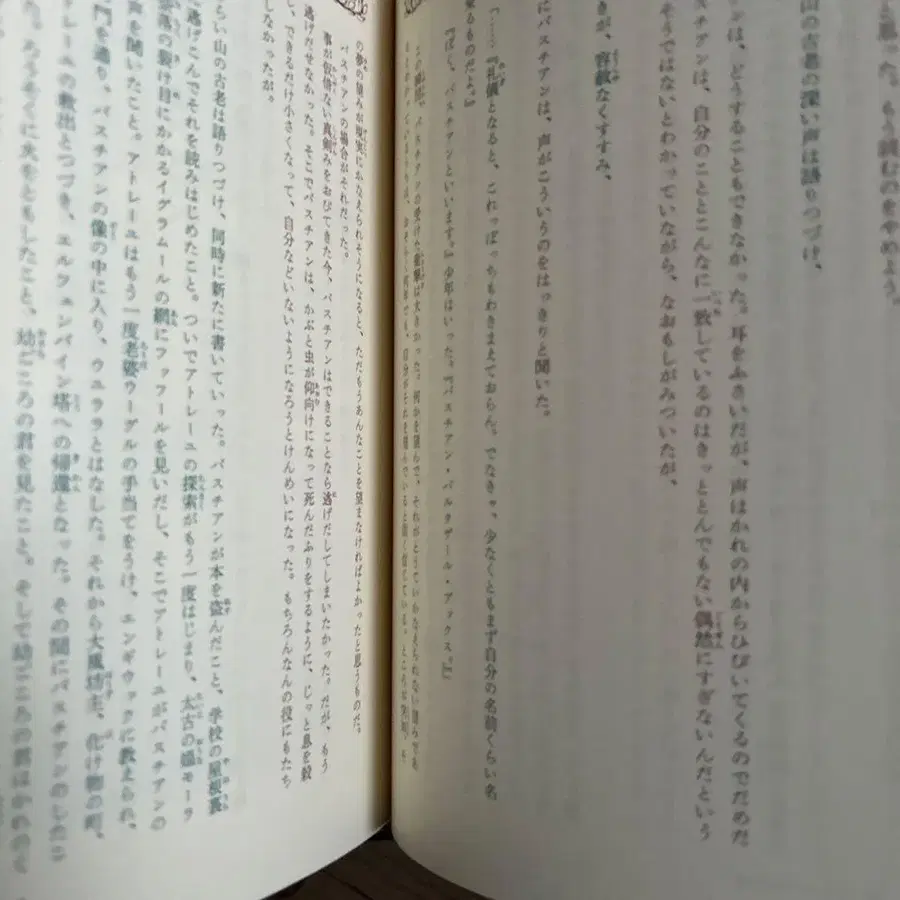 思った。もう読むのをやめよう。
山の古老の深い声は語りつづけ、
は、どうすることもできなかった。耳をふさいだが、声はかれの内からひびいてくるのでだめだ
スチアンは、自分のこととこんなに一致しているのはきっととんでもない偶然にすぎないんだという
そうではないとわかっていながら、なおもしがみついたが、
きが、容赦なくすすみ、
にバスチアンは、声がこういうのをはっきりと聞いた。
『……『礼儀となると、これっぽっちもわきまえておらん。でなきゃ、少なくともまず自分の名前くらい名
乗るものだよ。』
『ぼく、バスチアンといいます。』少年はいった。『バスチアン・バルタザール・ブックス。』
この瞬間、バスチアンの受けた衝撃は大きかった。何かを望んで、
の夢の望みが現実にかなえられそうになると、ただもうあんなことを望まなければよかったと思うものだ。
バスチアンの場合がそれだった。
事が仮借ない真剣みをおびてきた今、バスチアンはできることなら逃げだしてしまいたかった。だが、もう
逃げだせなかった。そこでバスチアンは、かぶと虫が仰向けになって死んだふりをするように、じっと息を殺
し、できるだけ小さくなって、自分などいないようになろうとけんめいになった。もちろんなんの役にもたち
しなかったが。
らい山の古老は語りつづけ、同時に新たに書いていった。バスチアンが本を盗んだこと、学校の屋根裏
に逃げこんでそれを読みはじめたこと。ついでアトレーユの探索がもう一度はじまり、太古の媼モーラ
の声を聞いたこと。アトレーユはもう一度老婆ウーグルの手当てをうけ、エンギウックに教えられ、
の裂け目にかかるイグラムールの網にフッフールを見いだし、そこでアトレーユがバスチアンの
門を通り、バスチアンの像の中に入り、ウユララとはなした。それから大風坊主、化け物の町、
トレーユの救出とつづき、エルフェンバイン塔への帰還となった。その間にバスチアンのしたこ
ろうそくに火をともしたこと、幼ごころの君を見たこと。そして幼ごころの君はかれの